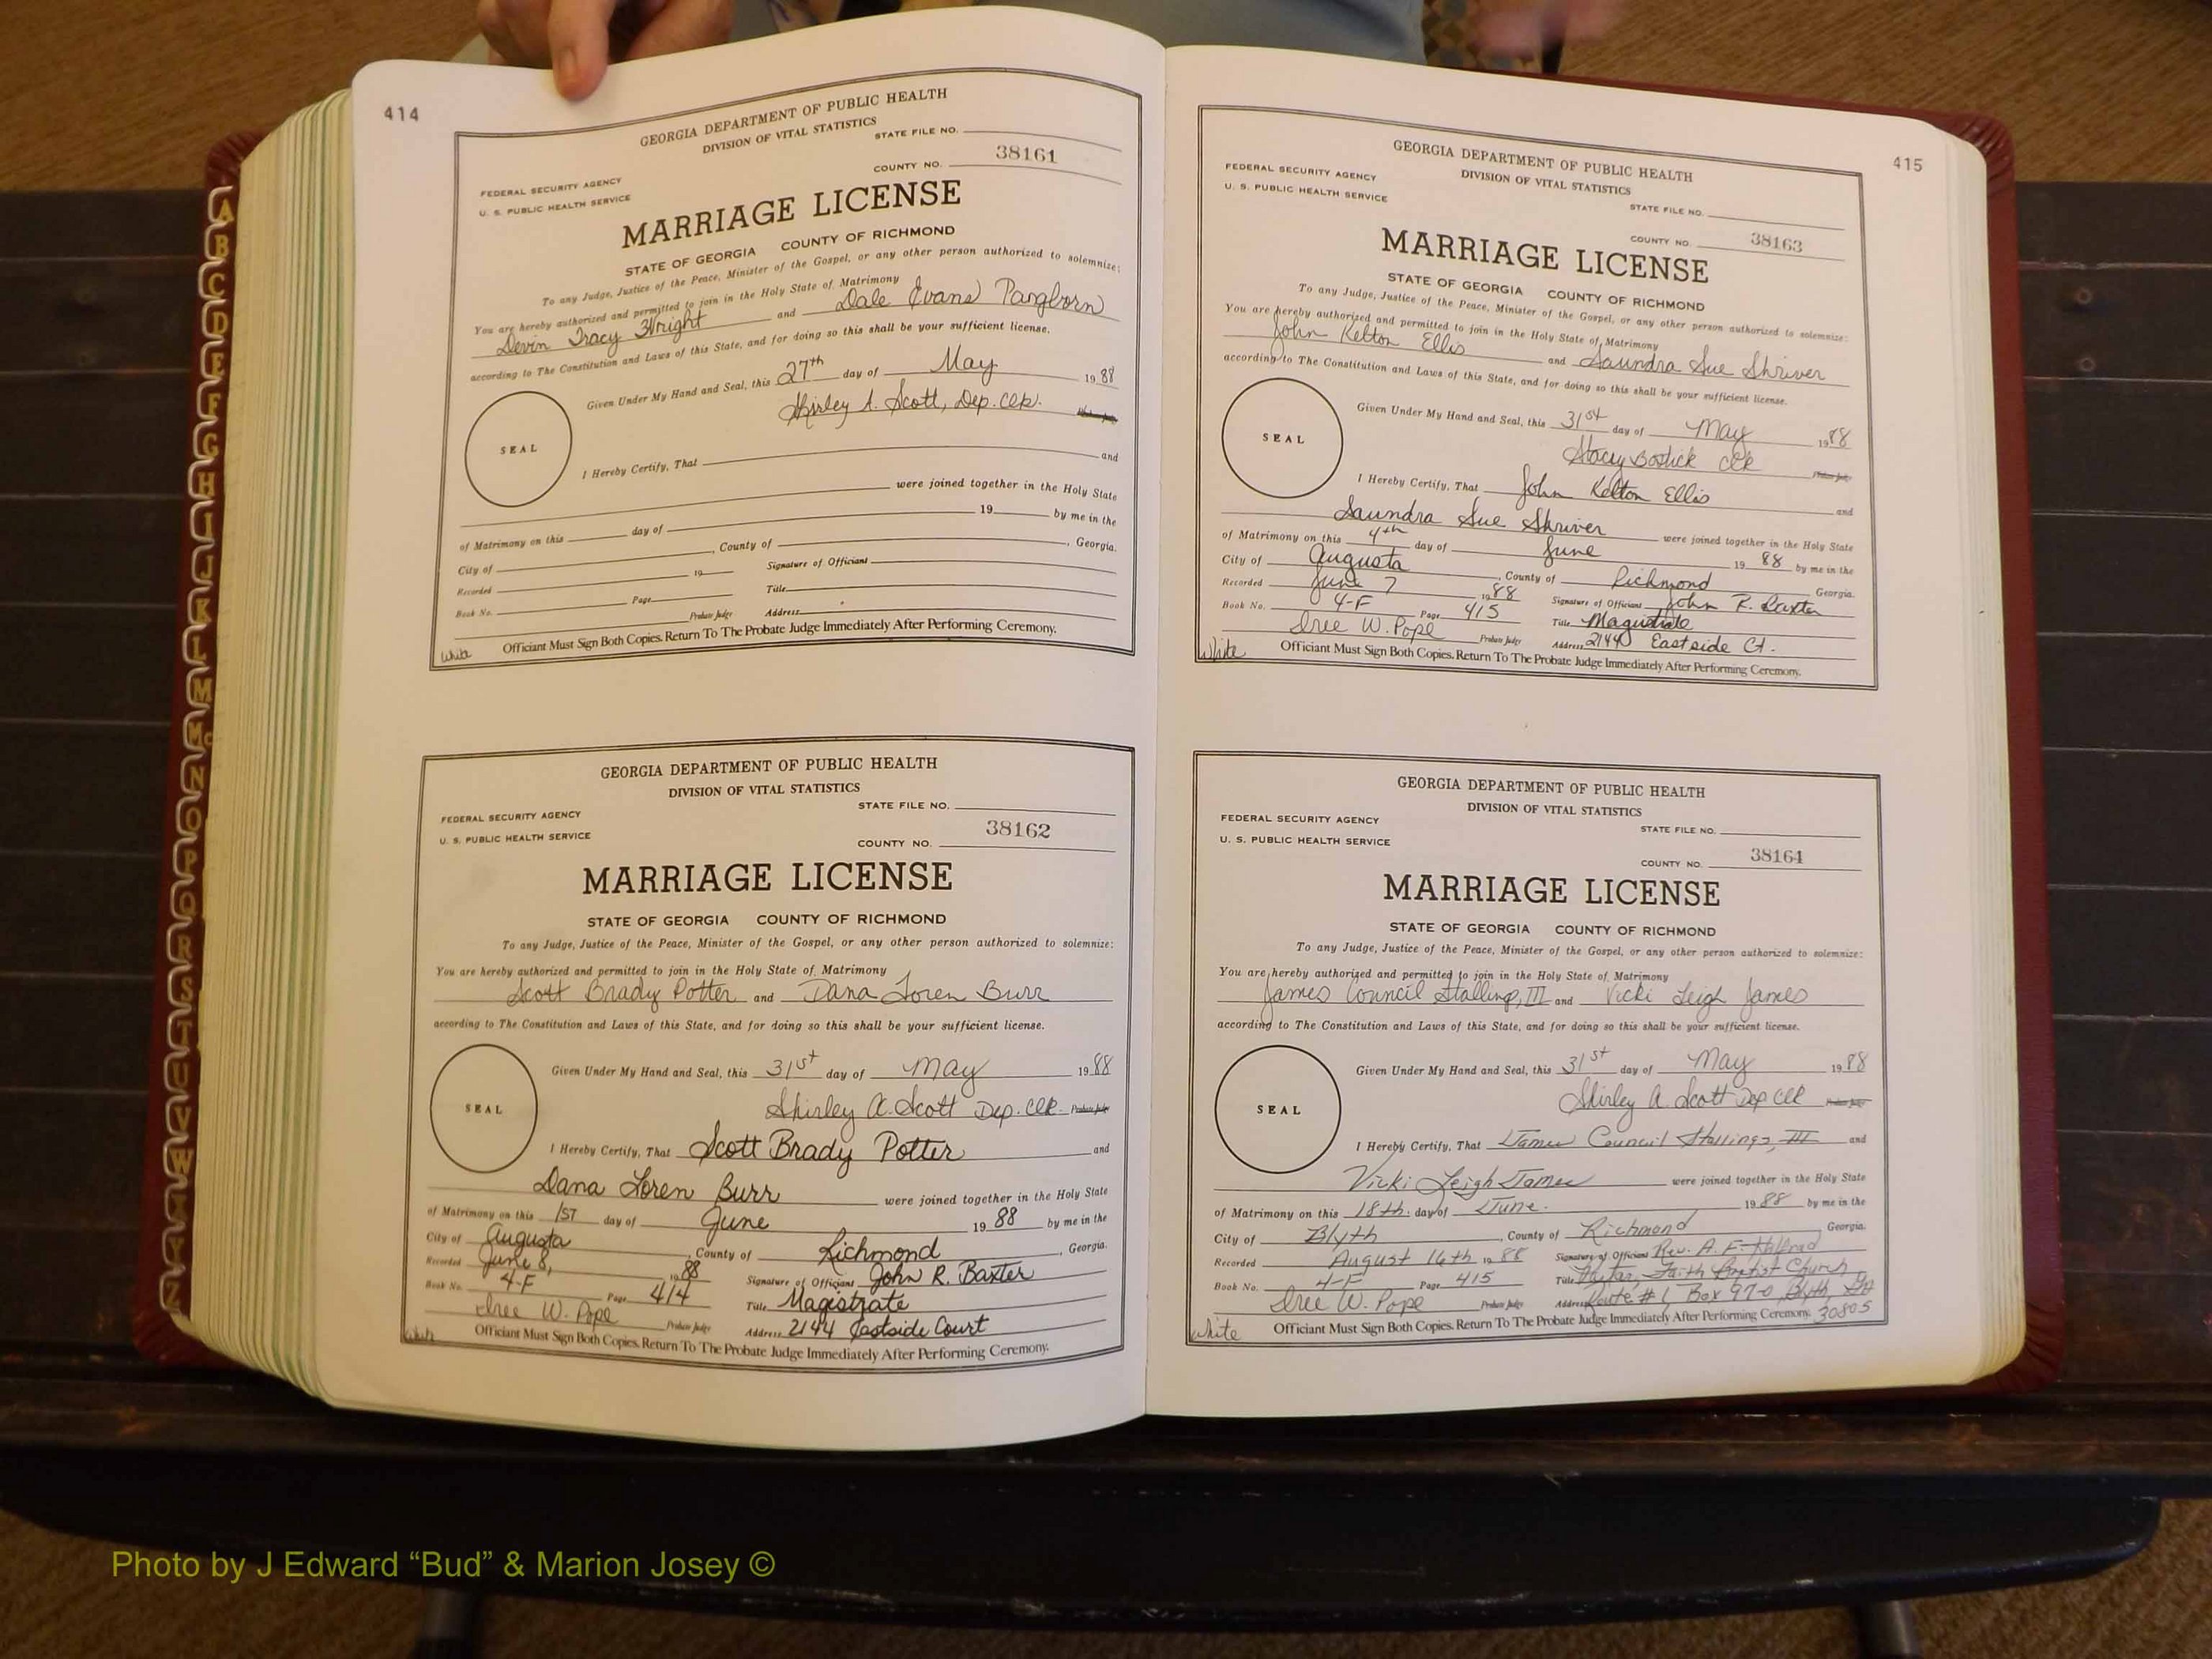 414
GEORGIA DEPARTMENT OF PUBLIC HEALTH
DIVISION OF VITAL STATISTICS
STATE FILE NO.
FEDERAL SECURITY AGENCY
U. S. PUBLIC HEALTH SERVICE
COUNTY NO. 38161
MARRIAGE LICENSE
STATE OF GEORGIA COUNTY OF RICHMOND
To any Judge, Justice of the Peace, Minister of the Gospel, or any other person authorized to solemnize:
You are hereby authorized and permitted to join in the Holy State of Matrimony
Devin Tracy Wright and Dale Evans Pangborn
according to The Constitution and Laws of this State, and for doing so this shall be your sufficient license.
Given Under My Hand and Seal, this 27th day of May 1988
SEAL
Shirley A. Scott, Dep. Clk.
I Hereby Certify, That and
were joined together in the Holy State
of Matrimony on this day of 19 by me in the
City of , County of , Georgia.
Recorded 19 Signature of Officiant
Book No. Page Title
Probate Judge Address
White Officiant Must Sign Both Copies. Return To The Probate Judge Immediately After Performing Ceremony.
GEORGIA DEPARTMENT OF PUBLIC HEALTH
DIVISION OF VITAL STATISTICS
STATE FILE NO.
FEDERAL SECURITY AGENCY
U. S. PUBLIC HEALTH SERVICE
COUNTY NO. 38162
MARRIAGE LICENSE
STATE OF GEORGIA COUNTY OF RICHMOND
To any Judge, Justice of the Peace, Minister of the Gospel, or any other person authorized to solemnize:
You are hereby authorized and permitted to join in the Holy State of Matrimony
Scott Brady Potter and Dana Loren Burr
according to The Constitution and Laws of this State, and for doing so this shall be your sufficient license.
Given Under My Hand and Seal, this 31st day of May 1988
SEAL
Shirley A. Scott Dep. Clk. Probate Judge
I Hereby Certify, That Scott Brady Potter and
Dana Loren Burr were joined together in the Holy State
of Matrimony on this 1ST day of June 1988 by me in the
City of Augusta , County of Richmond , Georgia.
Recorded June 8, 1988 Signature of Officiant John R. Baxter
Book No. 4-F Page 414 Title Magistrate
Dree W. Pope Probate Judge Address 2144 Eastside Court
Officiant Must Sign Both Copies. Return To The Probate Judge Immediately After Performing Ceremony.
415
GEORGIA DEPARTMENT OF PUBLIC HEALTH
DIVISION OF VITAL STATISTICS
FEDERAL SECURITY AGENCY
U. S. PUBLIC HEALTH SERVICE
STATE FILE NO.
COUNTY NO. 38163
MARRIAGE LICENSE
STATE OF GEORGIA COUNTY OF RICHMOND
To any Judge, Justice of the Peace, Minister of the Gospel, or any other person authorized to solemnize:
You are hereby authorized and permitted to join in the Holy State of Matrimony
John Kelton Ellis and Saundra Sue Shriver
according to The Constitution and Laws of this State, and for doing so this shall be your sufficient license.
Given Under My Hand and Seal, this 31st day of May 1988
SEAL
Stacy Bostick Clk Probate Judge
I Hereby Certify, That John Kelton Ellis and
Saundra Sue Shriver were joined together in the Holy State
of Matrimony on this 4th day of June 1988 by me in the
City of Augusta , County of Richmond Georgia.
Recorded June 7 1988 Signature of Officiant John R. Baxter
Book No. 4-F Page 415 Title Magistrate
Dree W. Pope Probate Judge Address 2144 Eastside Ct.
White Officiant Must Sign Both Copies. Return To The Probate Judge Immediately After Performing Ceremony.
GEORGIA DEPARTMENT OF PUBLIC HEALTH
DIVISION OF VITAL STATISTICS
FEDERAL SECURITY AGENCY
STATE FILE NO.
U. S. PUBLIC HEALTH SERVICE
COUNTY NO. 38164
MARRIAGE LICENSE
STATE OF GEORGIA COUNTY OF RICHMOND
To any Judge, Justice of the Peace, Minister of the Gospel, or any other person authorized to solemnize:
You are hereby authorized and permitted to join in the Holy State of Matrimony
James Council Stallings, III and Vicki Leigh James
according to The Constitution and Laws of this State, and for doing so this shall be your sufficient license.
Given Under My Hand and Seal, this 31st day of May 1988
SEAL
Shirley A Scott Dep Clk Probate Judge
I Hereby Certify, That James Council Stallings, III and
Vicki Leigh James were joined together in the Holy State
of Matrimony on this 18th. day of June. 1988 by me in the
City of Blyth , County of Richmond Georgia.
Recorded August 16th 1988 Signature of Officiant Rev. A. F.
Book No. 4-F Page 415 Title Pastor, Faith Baptist Church
Dree W. Pope Probate Judge Address Route #1, Box 970, Blyth, Ga
White Officiant Must Sign Both Copies. Return To The Probate Judge Immediately After Performing Ceremony. 30805
A
B
C
D
E
F
G
H
I
J
K
L
M
Mc
N
O
P
Q
R
S
T
U
V
W
Y
Z
Photo by J Edward “Bud” & Marion Josey ©